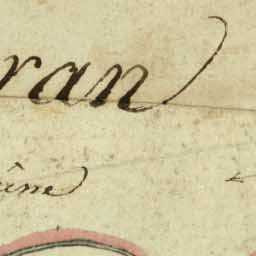 ran
ûme